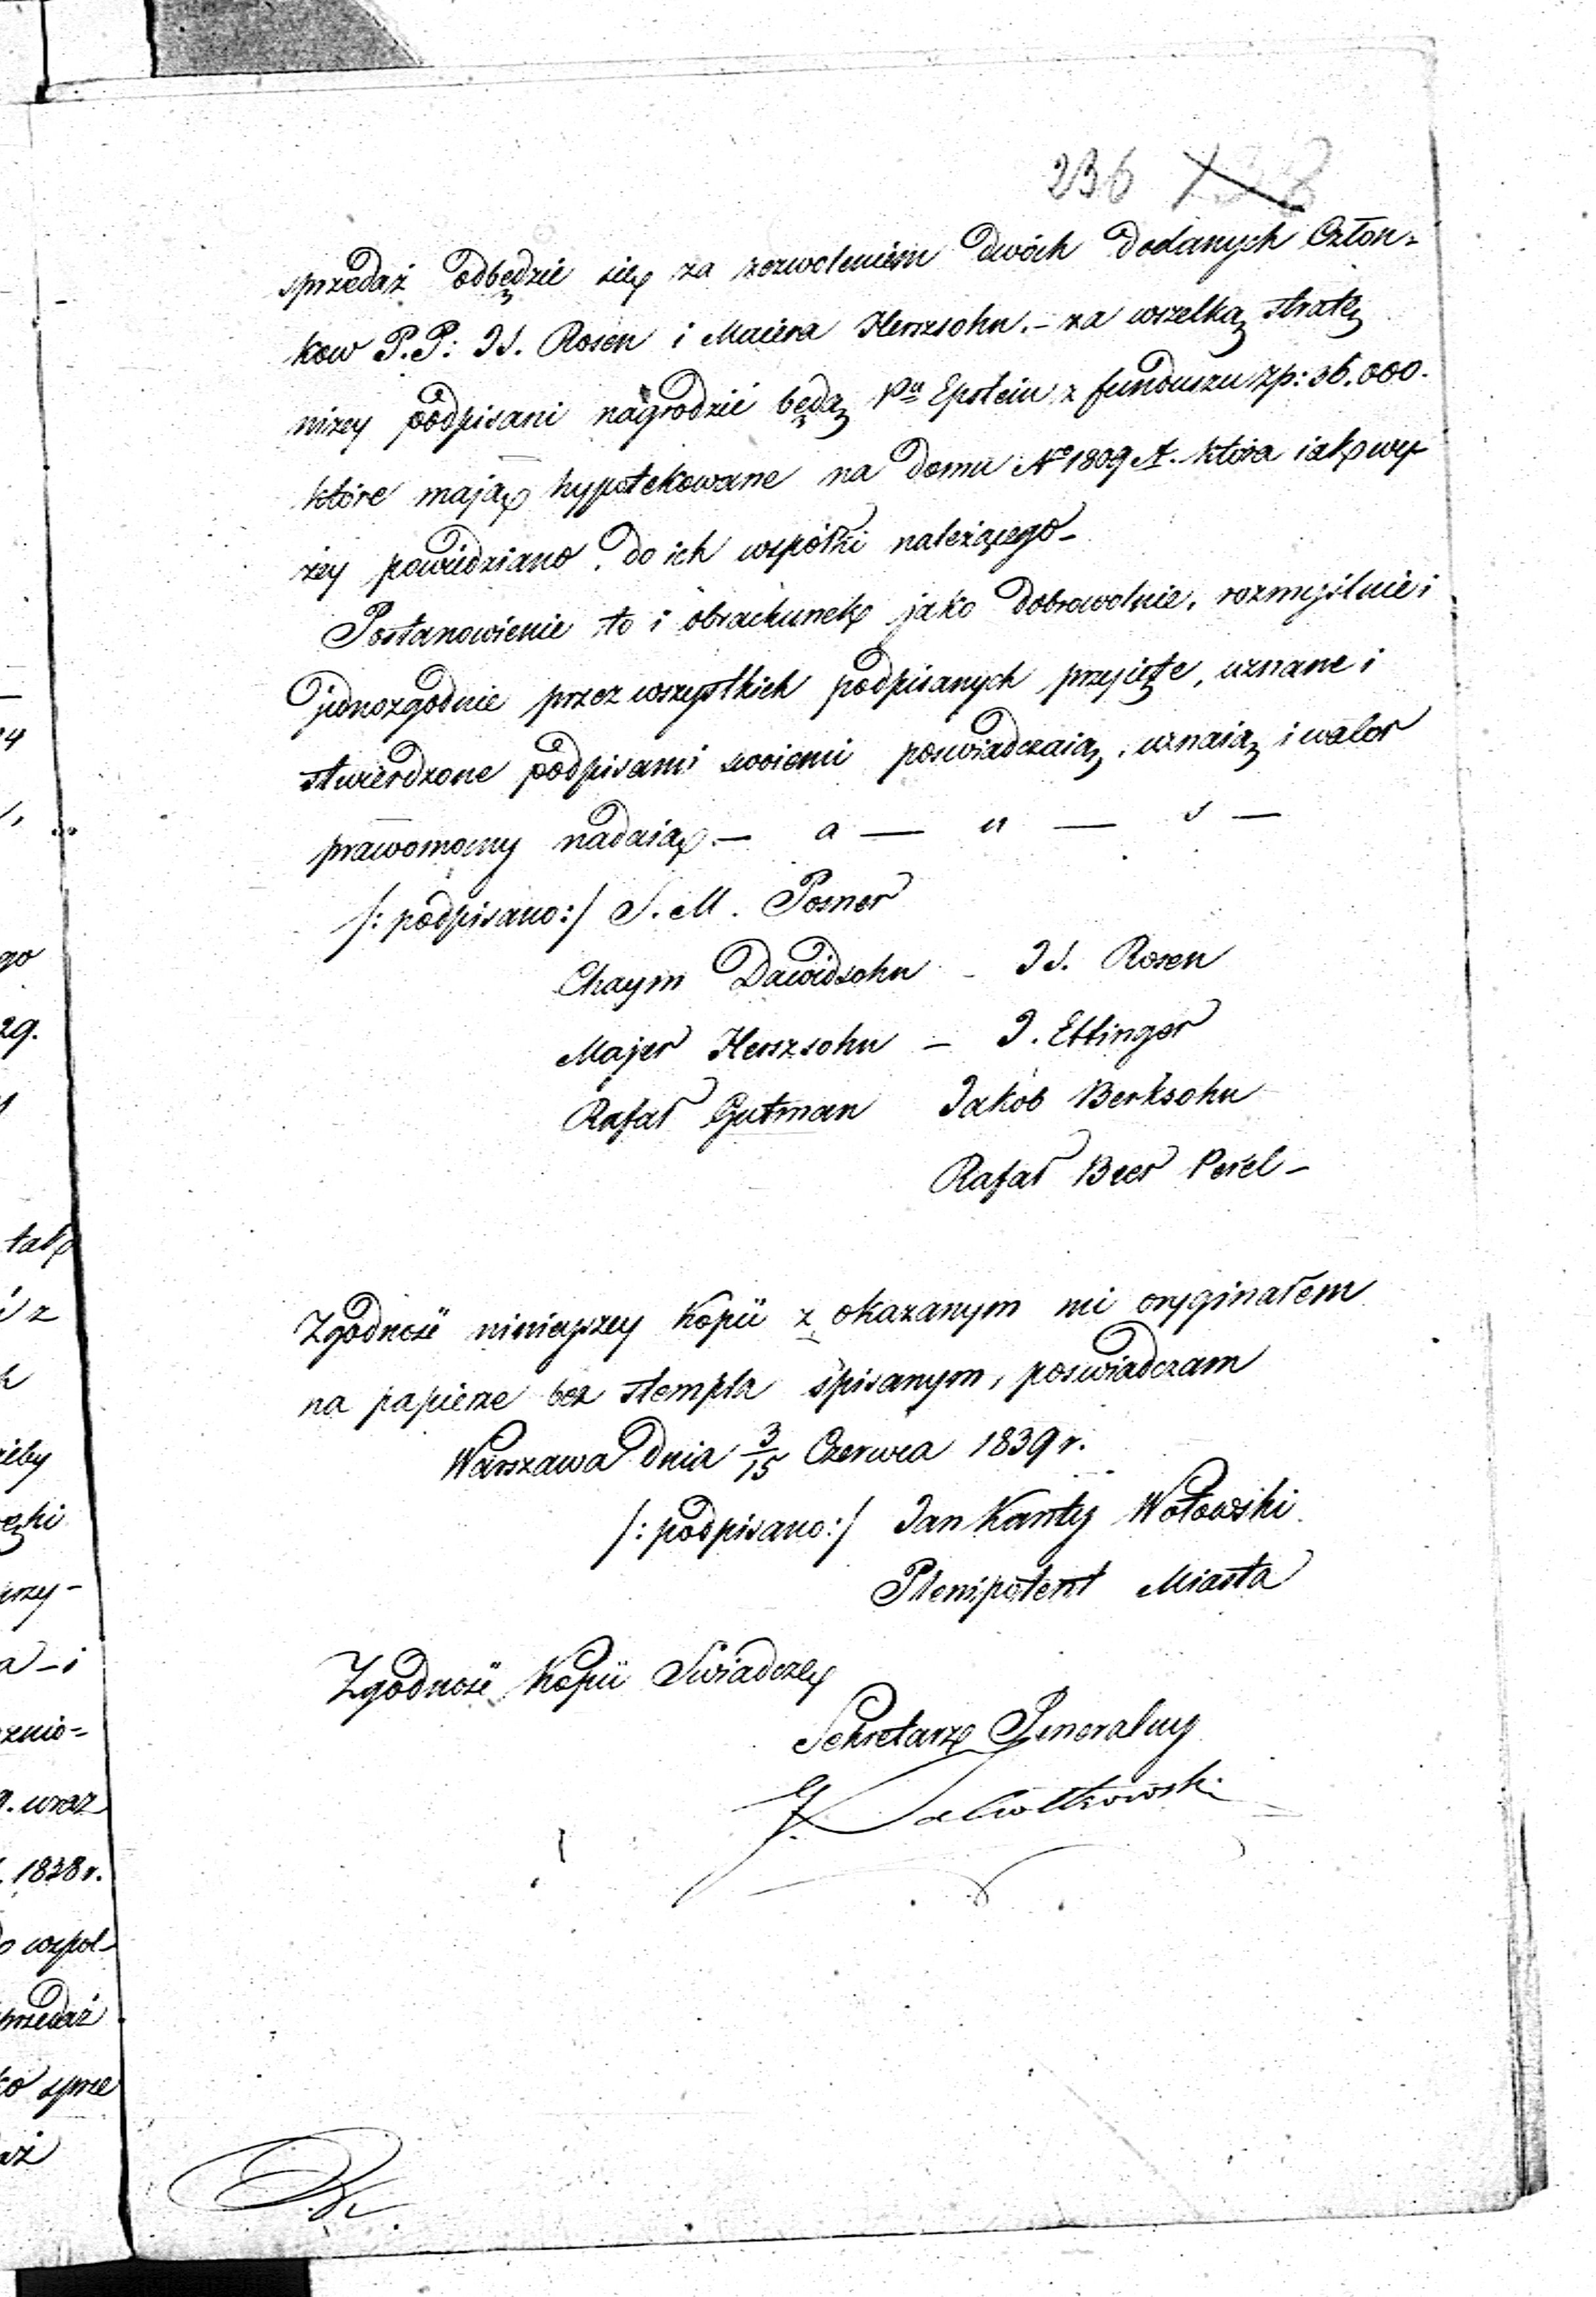 236 138
sprzedaż odbędzie się za zezwoleniem dwóch dodanych Człon-
kow P.P: IS. Rosen i Maiera Herszsohn. – za wszelką stratę
niżey podpisani nagrodzić będą Pu Epstein z funduszu zp: 36.000.
które mają hypotekowane na domu No 1809 A. która iak wy-
żey powiedziano, do ich wspólki należącego –
Postanowienie to i obrachunek jako dobrowolnie, rozmyślnie i
jednozgodnie przez wszystkich podpisanych przyięte, uznane i
stwierdzone podpisami swoiemi poswiadczaią, uznaią i walor
prawomocny nadaią. –
/: podpisano:/ S. M. Posner
Chaym Dawidsohn – IS. Rosen
Majer Herszsohn – I. Ettinger
Rafał Gutman Jakob Berksohn
Rafał Beer Perel –
Zgodność ninieyszey Kopii z okazanym mi oryginałem
na papierze bez stempla spisanym, poswiadczam
Warszawa dnia 3/15 Czerwca 1839 r.
/: podpisano:/ Jan Kanty Wołowski
Plenipotent Miasta
Zgodność Kopii Swiadczę
Sekretarz Generalny